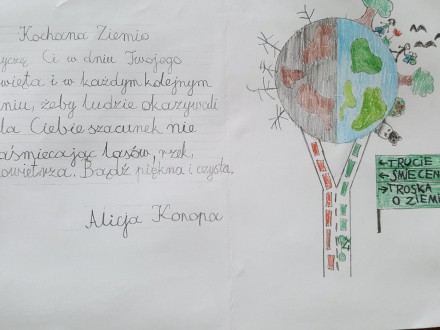 Kochana Ziemio
życzę Ci w dniu Twojego
święta i w każdym kolejnym
dniu, żeby ludzie okazywali
dla Ciebie szacunek nie
zaśmiecając lasów, rzek,
powietrza. Bądź piękna i czysta.
Alicja Konopa
←TRUCIE
←ŚMIECEN
→TROSKA
O ZIEMI